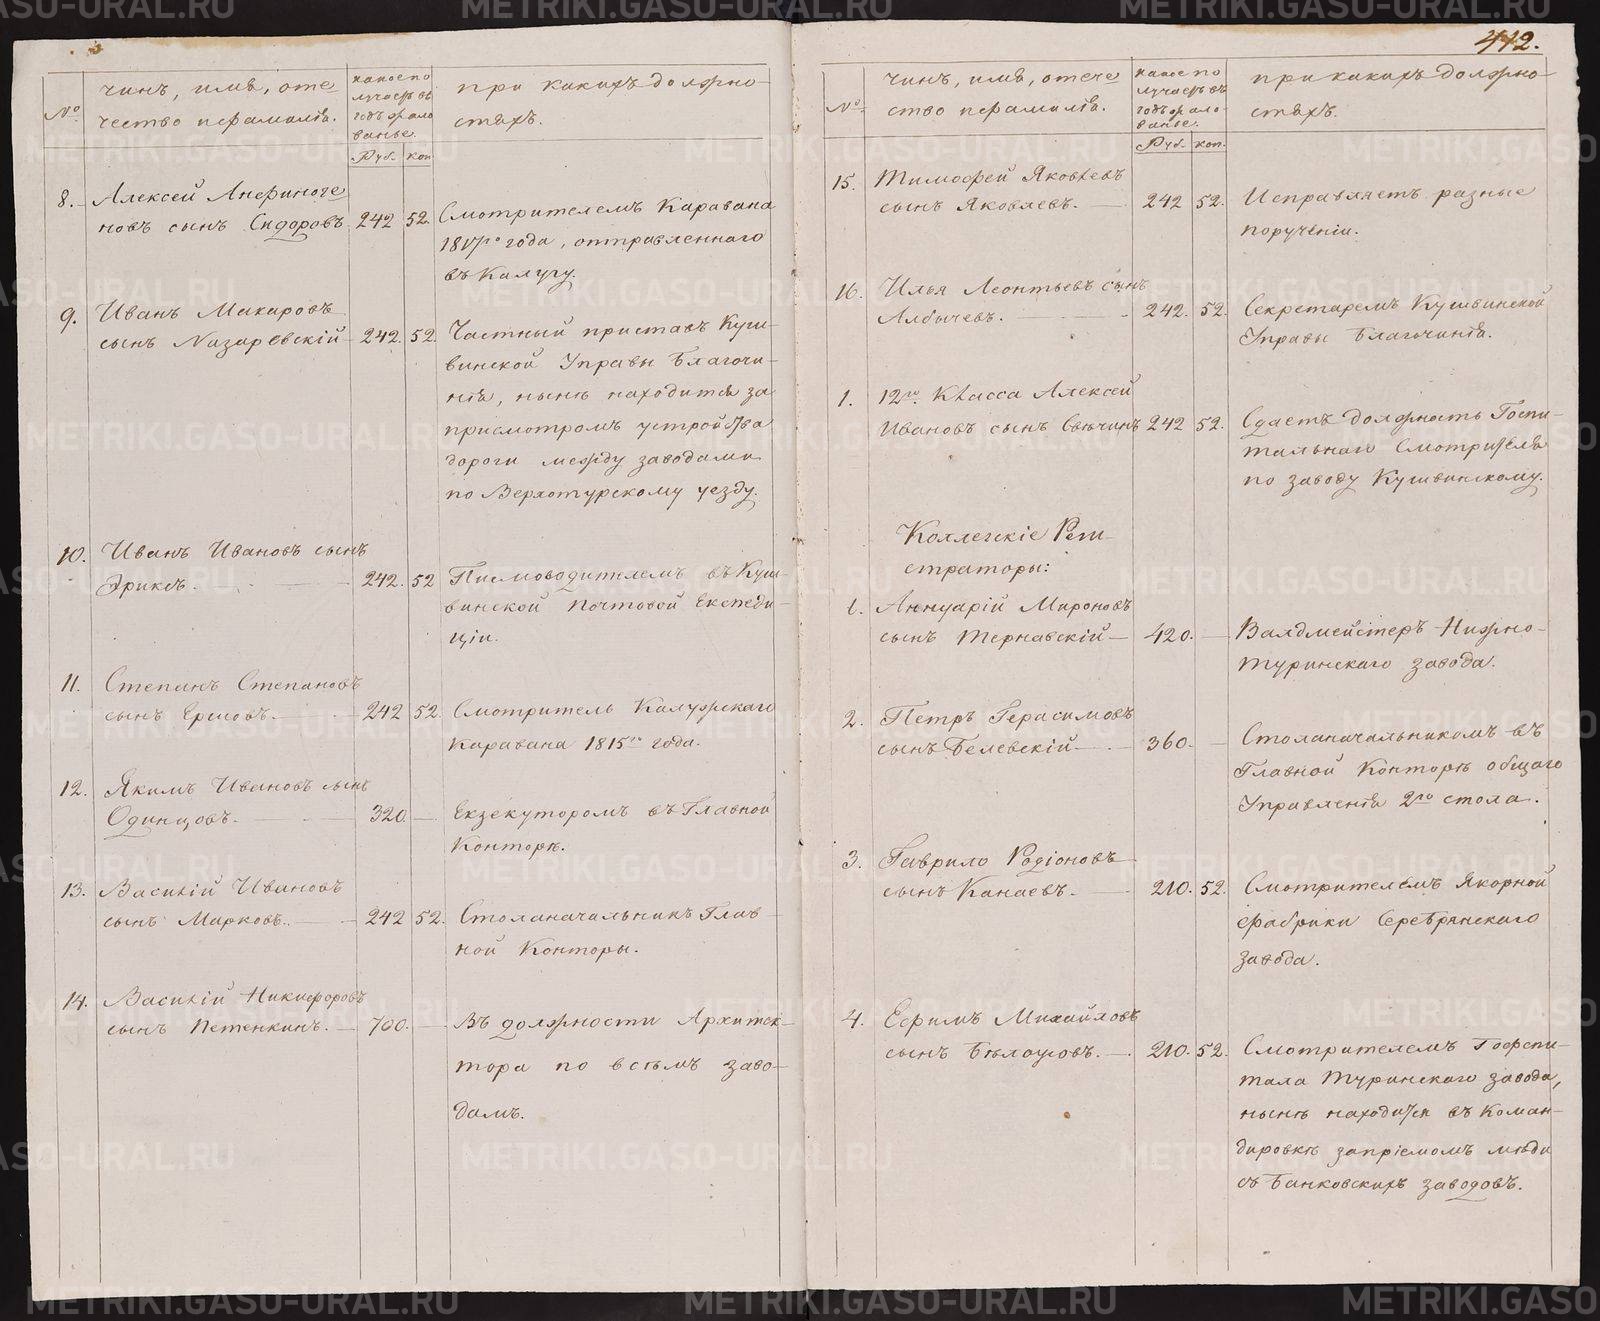 412.
№
чинъ, имя, оте
чество и фамилія.
какое по
лучаетъ въ
годъ жало
ванье.
Руб. коп
при какихъ должно
стяхъ.
8. Алексей Анфиноге
новъ сынъ Сидоровъ 242 52.
Смотрителемъ Каравана
1817го года, отправленнаго
въ Калугу.
9. Иванъ Макаровъ
сынъ Назаревскій 242. 52.
Частный приставъ Куш-
винской Управы Благочи-
нія, нынѣ находится за
присмотромъ устройства
дороги между заводами
по Верхотурскому уезду.
10. Иванъ Ивановъ сынъ
Эриксъ. 242. 52
Писмоводителемъ въ Куш-
винской почтовой Експеди-
ціи.
11. Степанъ Степановъ
сынъ Ершовъ. 242 52.
Смотритель Калужскаго
Каравана 1815го года.
12. Якимъ Ивановъ сынъ
Одинцовъ. 320. —
Екзекуторомъ въ Главной
Конторѣ.
13. Василій Ивановъ
сынъ Марковъ. 242 52.
Столаначальникъ Глав-
ной Конторы.
14. Василій Никифоровъ
сынъ Петенкинъ. 700. —
Въ должности Архитек-
тора по всѣмъ заво-
дамъ.
№
чинъ, имя, отече
ство и фамилія.
какое по
лучаетъ въ
годъ жало
ванье.
Руб. коп.
при какихъ должно-
стяхъ.
15. Тимофей Яковлевъ
сынъ Яковлевъ. 242 52.
Исправляетъ разные
порученіи.
16. Илья Леонтьевъ сынъ
Албычевъ. 242. 52.
Секретаремъ Кушвинской
Управы Благочинія.
1. 12го Класса Алексей
Ивановъ сынъ Свѣчинъ 242 52.
Сдаетъ должность Госпи-
тальнаго Смотрителя
по заводу Кушвинскому.
Коллежскіе Реги-
страторы:
1. Аннуарій Мироновъ
сынъ Тернавскій — 420. —
Валдмейстеръ Нижно-
туринскаго завода.
2. Петръ Герасимовъ
сынъ Белевскій — 360. —
Столаначальникомъ въ
Главной Конторѣ общаго
Управленія 2го стола.
3. Гаврило Родіоновъ
сынъ Канаевъ. 210. 52.
Смотрителемъ Якорной
фабрики Серебрянскаго
завода.
4. Ефимъ Михайловъ
сынъ Бѣлоусовъ. 210. 52.
Смотрителемъ Гофспи-
тала Туринскаго завода,
нынѣ находится въ Коман-
дировкѣ запріемомъ мѣди
съ Банковскихъ заводовъ.